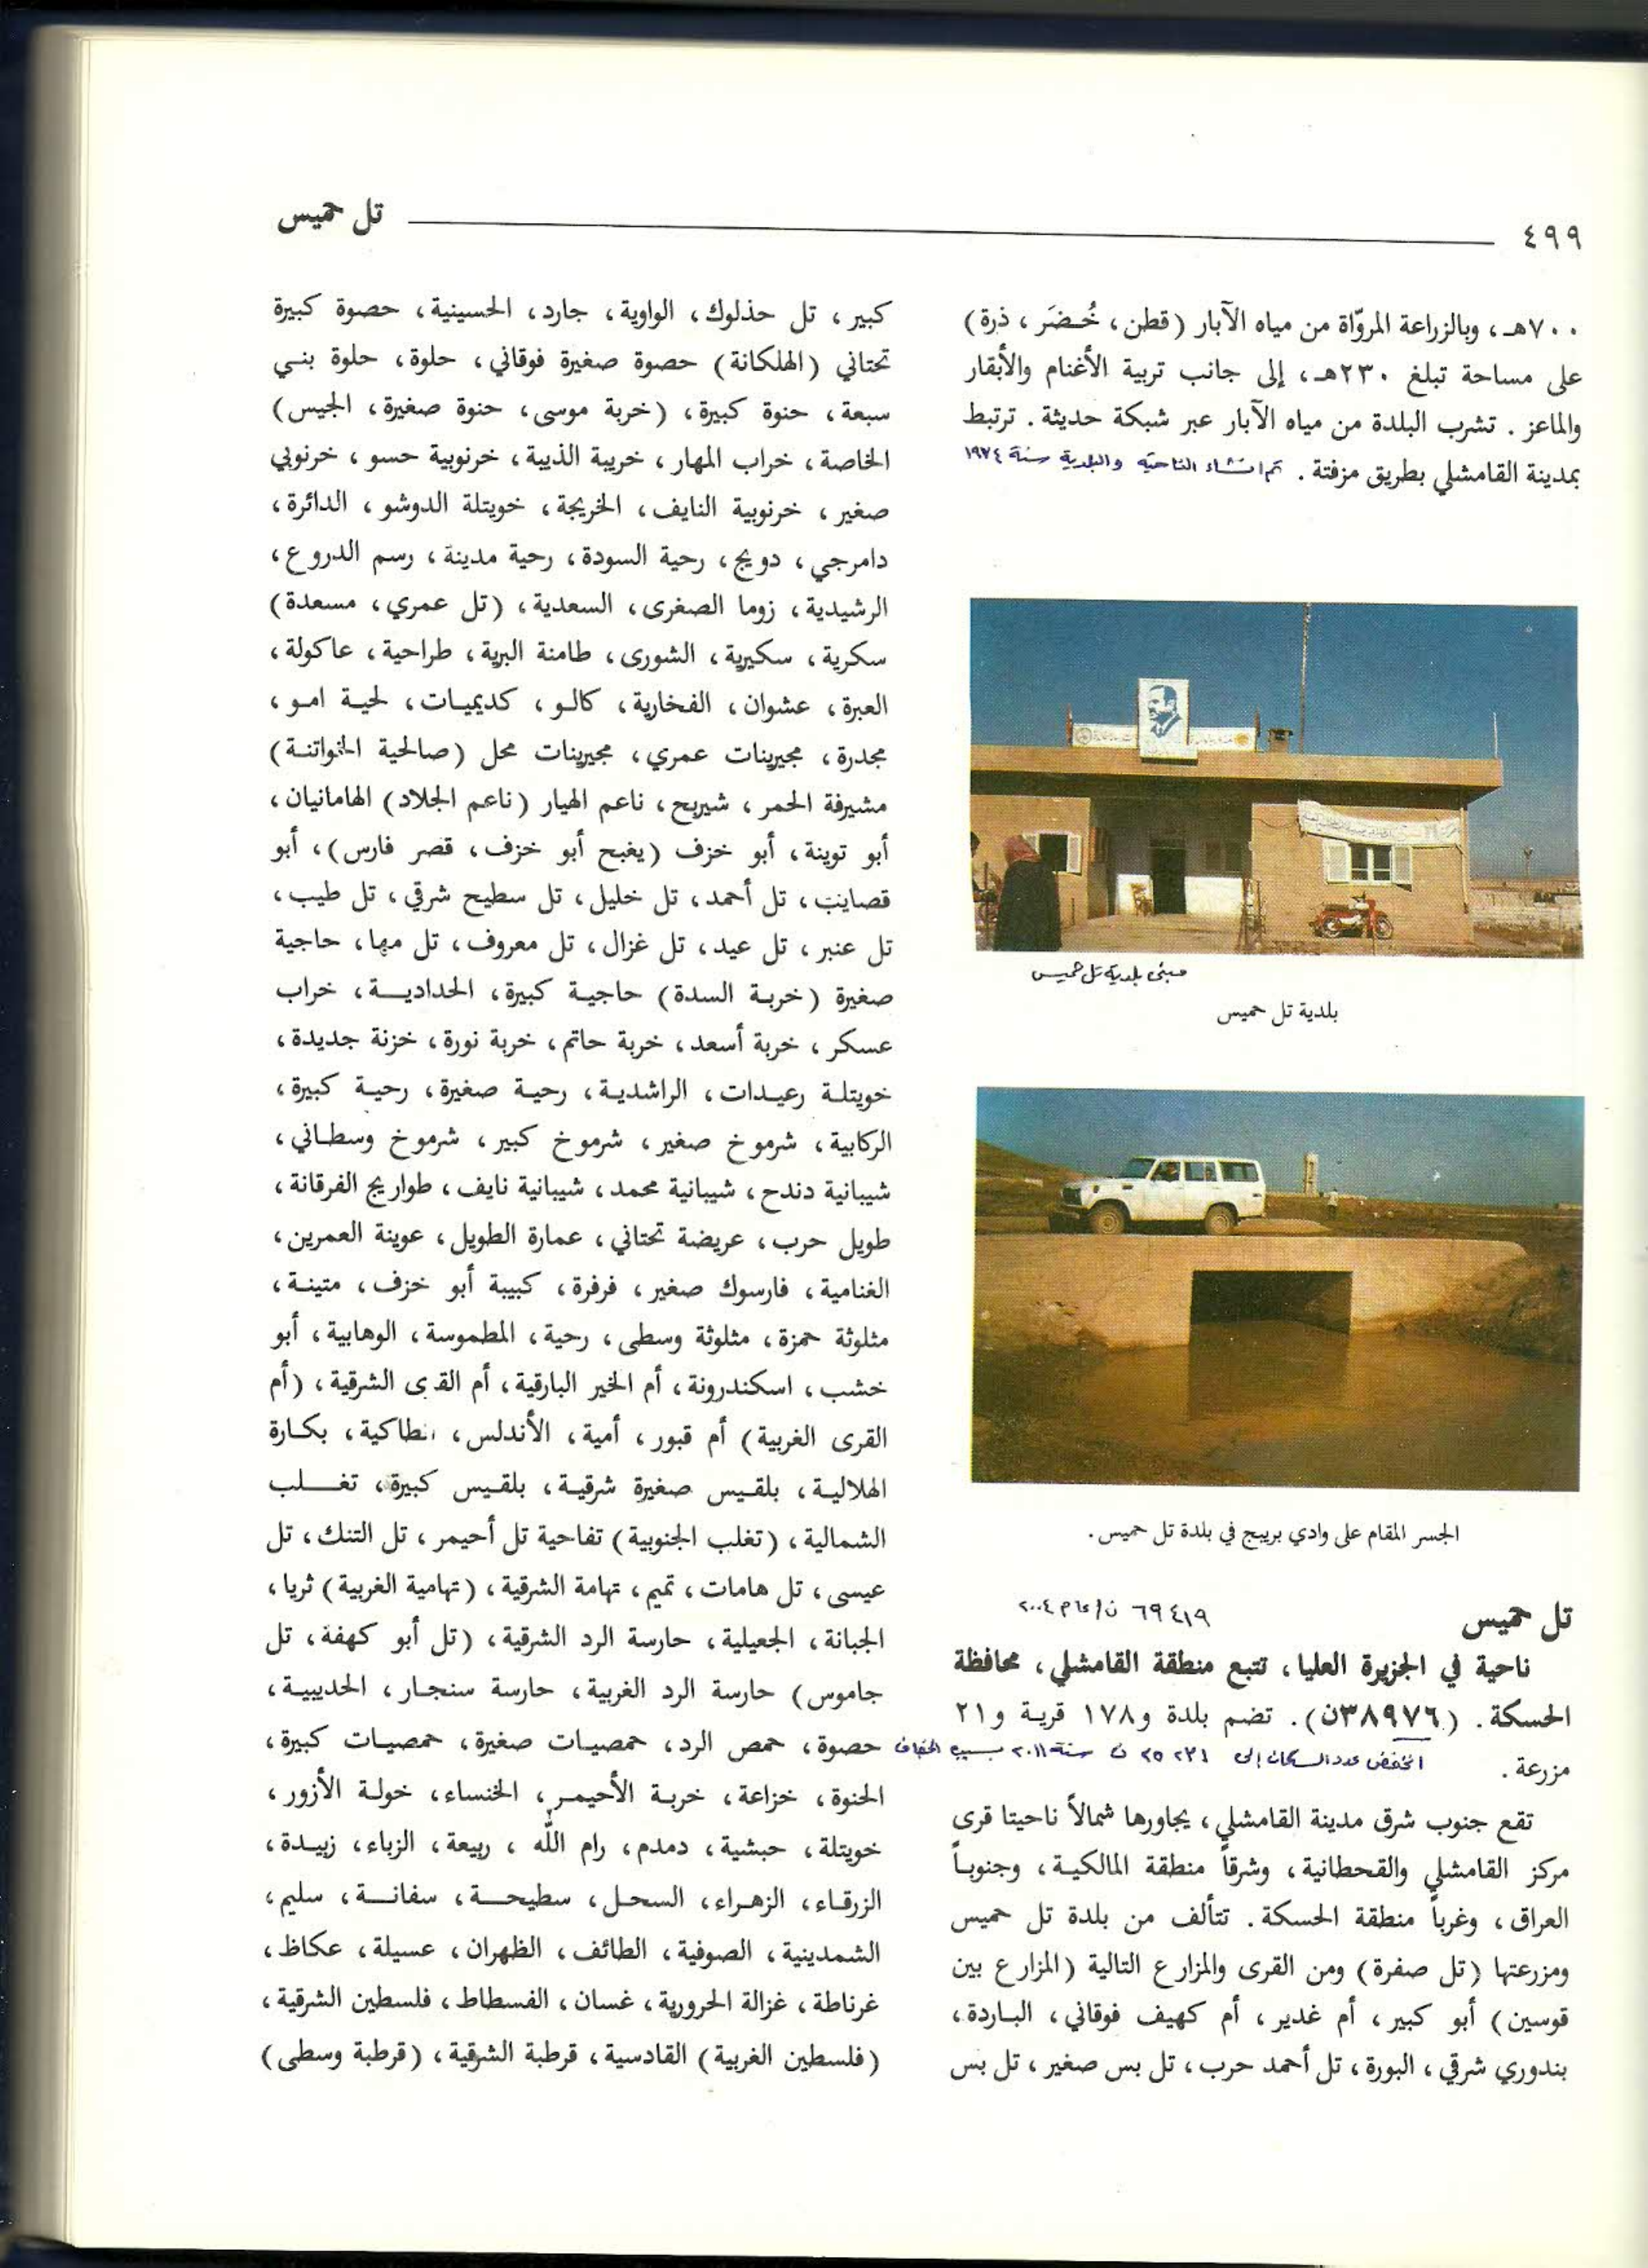 ٤٩٩
تل حميس
٧٠٠هـ، وبالزراعة المروّاة من مياه الآبار (قطن، خُضَر، ذرة)
على مساحة تبلغ ٢٣٠هـ، إلى جانب تربية الأغنام والأبقار
والماعز. تشرب البلدة من مياه الآبار عبر شبكة حديثة. ترتبط
بمدينة القامشلي بطريق مزفتة. تم انشاء الناحيه والبلدية سنة ١٩٧٤
مبنى بلدية تل حميس
بلدية تل حميس
الجسر المقام على وادي بريبج في بلدة تل حميس.
تل حميس ٦٩٤١٩ ن/عام ٢٠٠٤
ناحية في الجزيرة العليا، تتبع منطقة القامشلي، محافظة
الحسكة. (٣٨٩٧٦ن). تضم بلدة و١٧٨ قرية و٢١
مزرعة. انخفض عدد السكان إلى ٢٥٢٣١ ن سنة ٢٠١١ بسبب الجفاف
تقع جنوب شرق مدينة القامشلي، يجاورها شمالاً ناحيتا قرى
مركز القامشلي والقحطانية، وشرقاً منطقة المالكية، وجنوباً
العراق، وغرباً منطقة الحسكة. تتألف من بلدة تل حميس
ومزرعتها (تل صفرة) ومن القرى والمزارع التالية (المزارع بين
قوسين) أبو كبير، أم غدير، أم كهيف فوقاني، الباردة،
بندوري شرقي، البورة، تل أحمد حرب، تل بس صغير، تل بس
كبير، تل حذلوك، الواوية، جارد، الحسينية، حصوة كبيرة
تحتاني (الهلكانة) حصوة صغيرة فوقاني، حلوة، حلوة بني
سبعة، حنوة كبيرة، (خربة موسى، حنوة صغيرة، الجيس)
الخاصة، خراب المهار، خريبة الذيبة، خرنوبية حسو، خرنوبي
صغير، خرنوبية النايف، الخريجة، خويتلة الدوشو، الدائرة،
دامرجي، دويج، رحية السودة، رحية مدينة، رسم الدروع،
الرشيدية، زوما الصغرى، السعدية، (تل عمري، مسعدة)
سكرية، سكيرية، الشورى، طامنة البرية، طراحية، عاكولة،
العبرة، عشوان، الفخارية، كالو، كديميات، لحية امو،
مجدرة، مجيرينات عمري، مجيرينات محل (صالحية الخواتنة)
مشيرفة الحمر، شيريح، ناعم الهيار (ناعم الجلاد) الهامانيان،
أبو توينة، أبو خزف (يغبح أبو خزف، قصر فارس)، أبو
قصايب، تل أحمد، تل خليل، تل سطيح شرقي، تل طيب،
تل عنبر، تل عيد، تل غزال، تل معروف، تل مها، حاجية
صغيرة (خربة السدة) حاجية كبيرة، الحدادية، خراب
عسكر، خربة أسعد، خربة حاتم، خربة نورة، خزنة جديدة،
خويتلة رعيدات، الراشدية، رحية صغيرة، رحية كبيرة،
الركابية، شرموخ صغير، شرموخ كبير، شرموخ وسطاني،
شيبانية دندح، شيبانية محمد، شيبانية نايف، طواريج الفرقانة،
طويل حرب، عريضة تحتاني، عمارة الطويل، عوينة العمرين،
الغنامية، فارسوك صغير، فرفرة، كبيبة أبو خزف، متينة،
مثلوثة حمزة، مثلوثة وسطى، رحية، المطموسة، الوهابية، أبو
خشب، اسكندرونة، أم الخير البارقية، أم القرى الشرقية، (أم
القرى الغربية) أم قبور، أمية، الأندلس، انطاكية، بكارة
الهلالية، بلقيس صغيرة شرقية، بلقيس كبيرة، تغلب
الشمالية، (تغلب الجنوبية) تفاحية تل أحيمر، تل التنك، تل
عيسى، تل هامات، تميم، تهامة الشرقية، (تهامية الغربية) ثريا،
الجبانة، الجعيلية، حارسة الرد الشرقية، (تل أبو كهفة، تل
جاموس) حارسة الرد الغربية، حارسة سنجار، الحديبية،
حصوة، حمص الرد، حمصيات صغيرة، حمصيات كبيرة،
الحنوة، خزاعة، خربة الأحيمر، الخنساء، خولة الأزور،
خويتلة، حبشية، دمدم، رام الله، ربيعة، الزباء، زبيدة،
الزرقاء، الزهراء، السحل، سطيحة، سفانة، سليم،
الشمدينية، الصوفية، الطائف، الظهران، عسيلة، عكاظ،
غرناطة، غزالة الحرورية، غسان، الفسطاط، فلسطين الشرقية،
(فلسطين الغربية) القادسية، قرطبة الشرقية، (قرطبة وسطى)